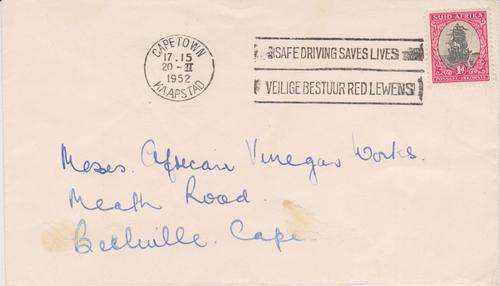 CAPETOWN
17.15
20-II
1952
KAAPSTAD
SAFE DRIVING SAVES LIVES
VEILIGE BESTUUR RED LEWENS
SUID-AFRIKA
1D
Messrs. African Vinegar Works.
Meath Road.
Bellville. Cape